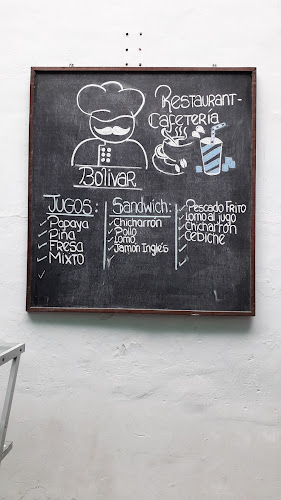 Restaurant-
Cafeteria
Bolivar
Jugos:
Papaya
Piña
Fresa
Mixto
Sandwich:
Chicharrón
Pollo
Lomo
Jamon Ingle's
Pescado Frito
Lomo al jugo
Chicharrón
Cebiche